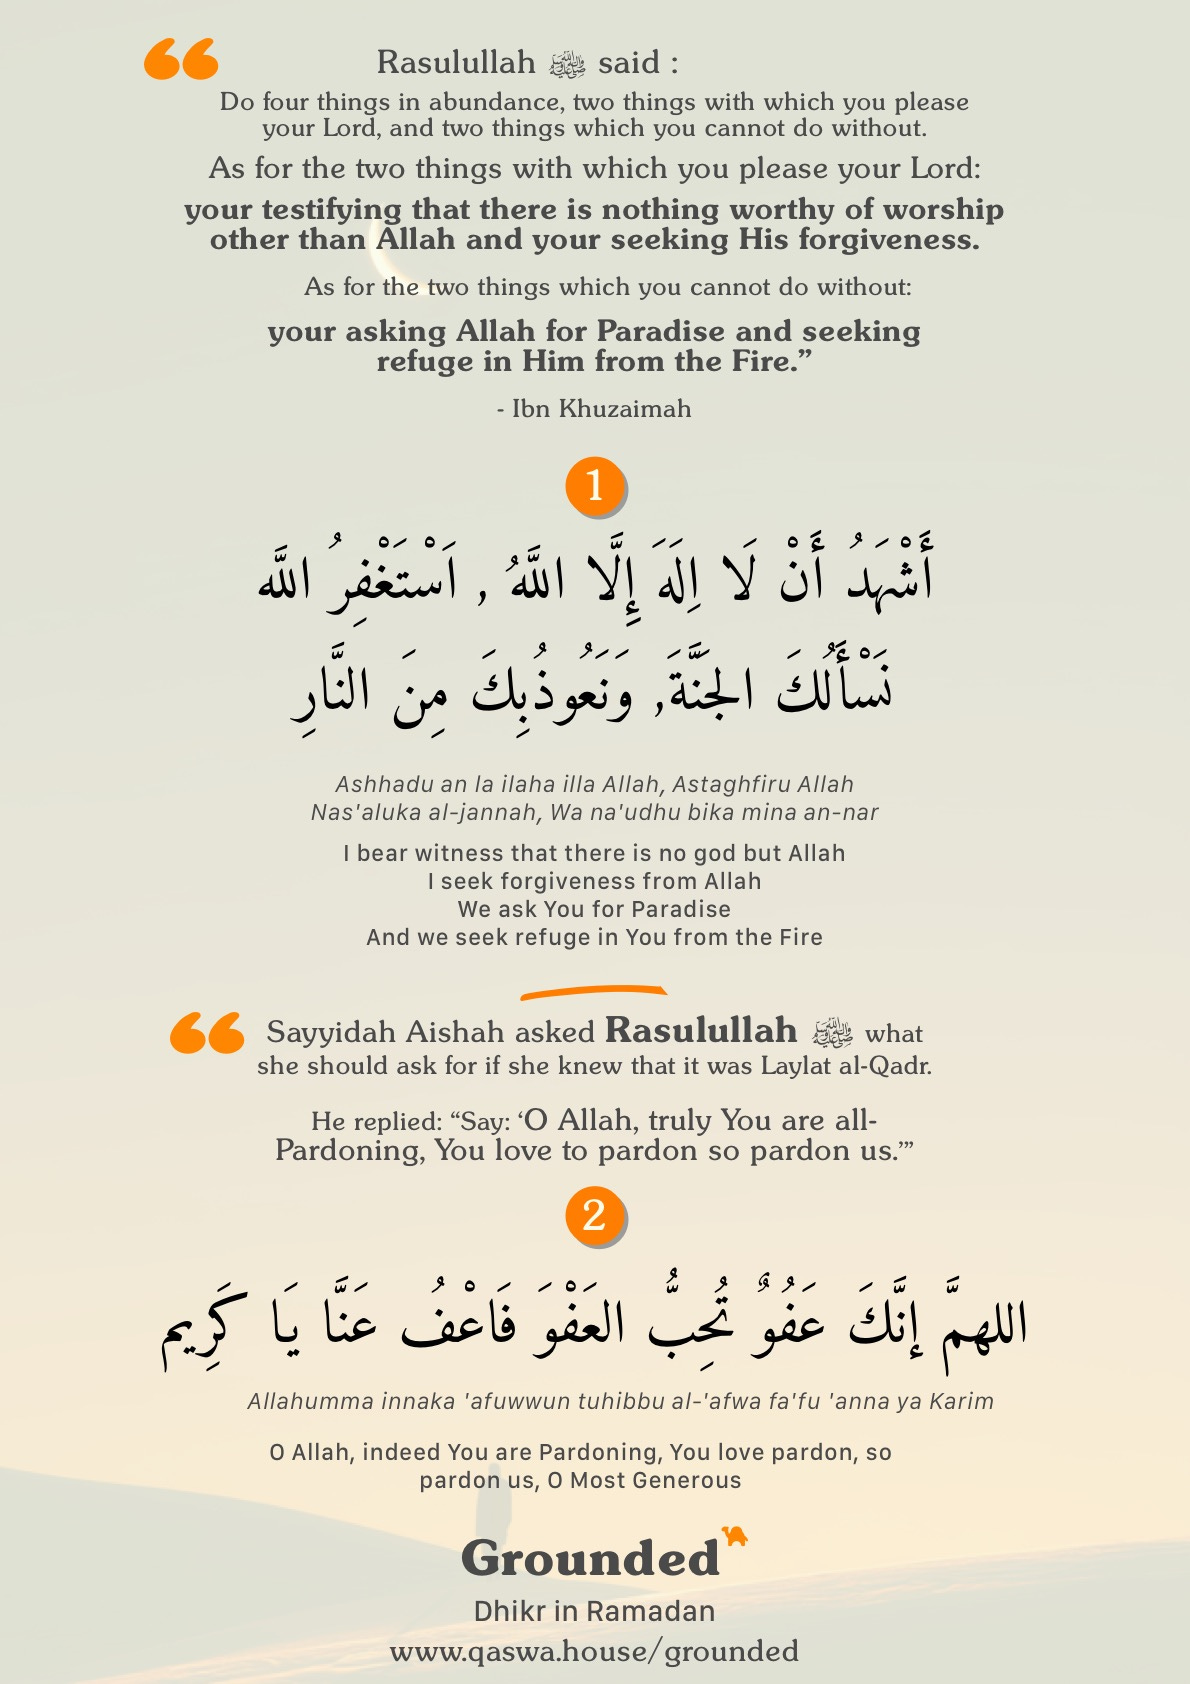 “
Rasulullah ﷺ said :
Do four things in abundance, two things with which you please
your Lord, and two things which you cannot do without.
As for the two things with which you please your Lord:
your testifying that there is nothing worthy of worship
other than Allah and your seeking His forgiveness.
As for the two things which you cannot do without:
your asking Allah for Paradise and seeking
refuge in Him from the Fire.”
- Ibn Khuzaimah
1
أَشْهَدُ أَنْ لَا اِلَهَ إِلَّا اللَّهُ , اَسْتَغْفِرُ اللَّه
نَسْأَلُكَ الجَنَّةَ, وَنَعُوذُبِكَ مِنَ النَّارِ
Ashhadu an la ilaha illa Allah, Astaghfiru Allah
Nas'aluka al-jannah, Wa na'udhu bika mina an-nar
I bear witness that there is no god but Allah
I seek forgiveness from Allah
We ask You for Paradise
And we seek refuge in You from the Fire
“
Sayyidah Aishah asked Rasulullah ﷺ what
she should ask for if she knew that it was Laylat al-Qadr.
He replied: “Say: ‘O Allah, truly You are all-
Pardoning, You love to pardon so pardon us.’”
2
اللهمَّ إنَّكَ عَفُوٌ تُحِبُّ العَفْوَ فَاعْفُ عَنَّا يَا كَرِيم
Allahumma innaka 'afuwwun tuhibbu al-'afwa fa'fu 'anna ya Karim
O Allah, indeed You are Pardoning, You love pardon, so
pardon us, O Most Generous
Grounded
Dhikr in Ramadan
www.qaswa.house/grounded